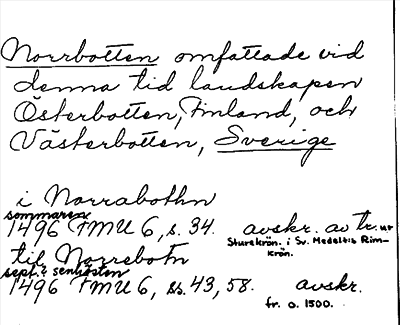 Norrbotten omfattade vid
denna tid landskapen
Österbotten, Finland, och
Västerbotten, Sverige
i Norrabothn
sommaren
1496 FMU 6, s. 34. avskr. av tr. ur
Sturekrön. i Sv. Medeltids Rim-
krön.
til Norrebotn
sept. & senhösten
1496 FMU 6, ss. 43, 58. avskr.
fr. o. 1500.